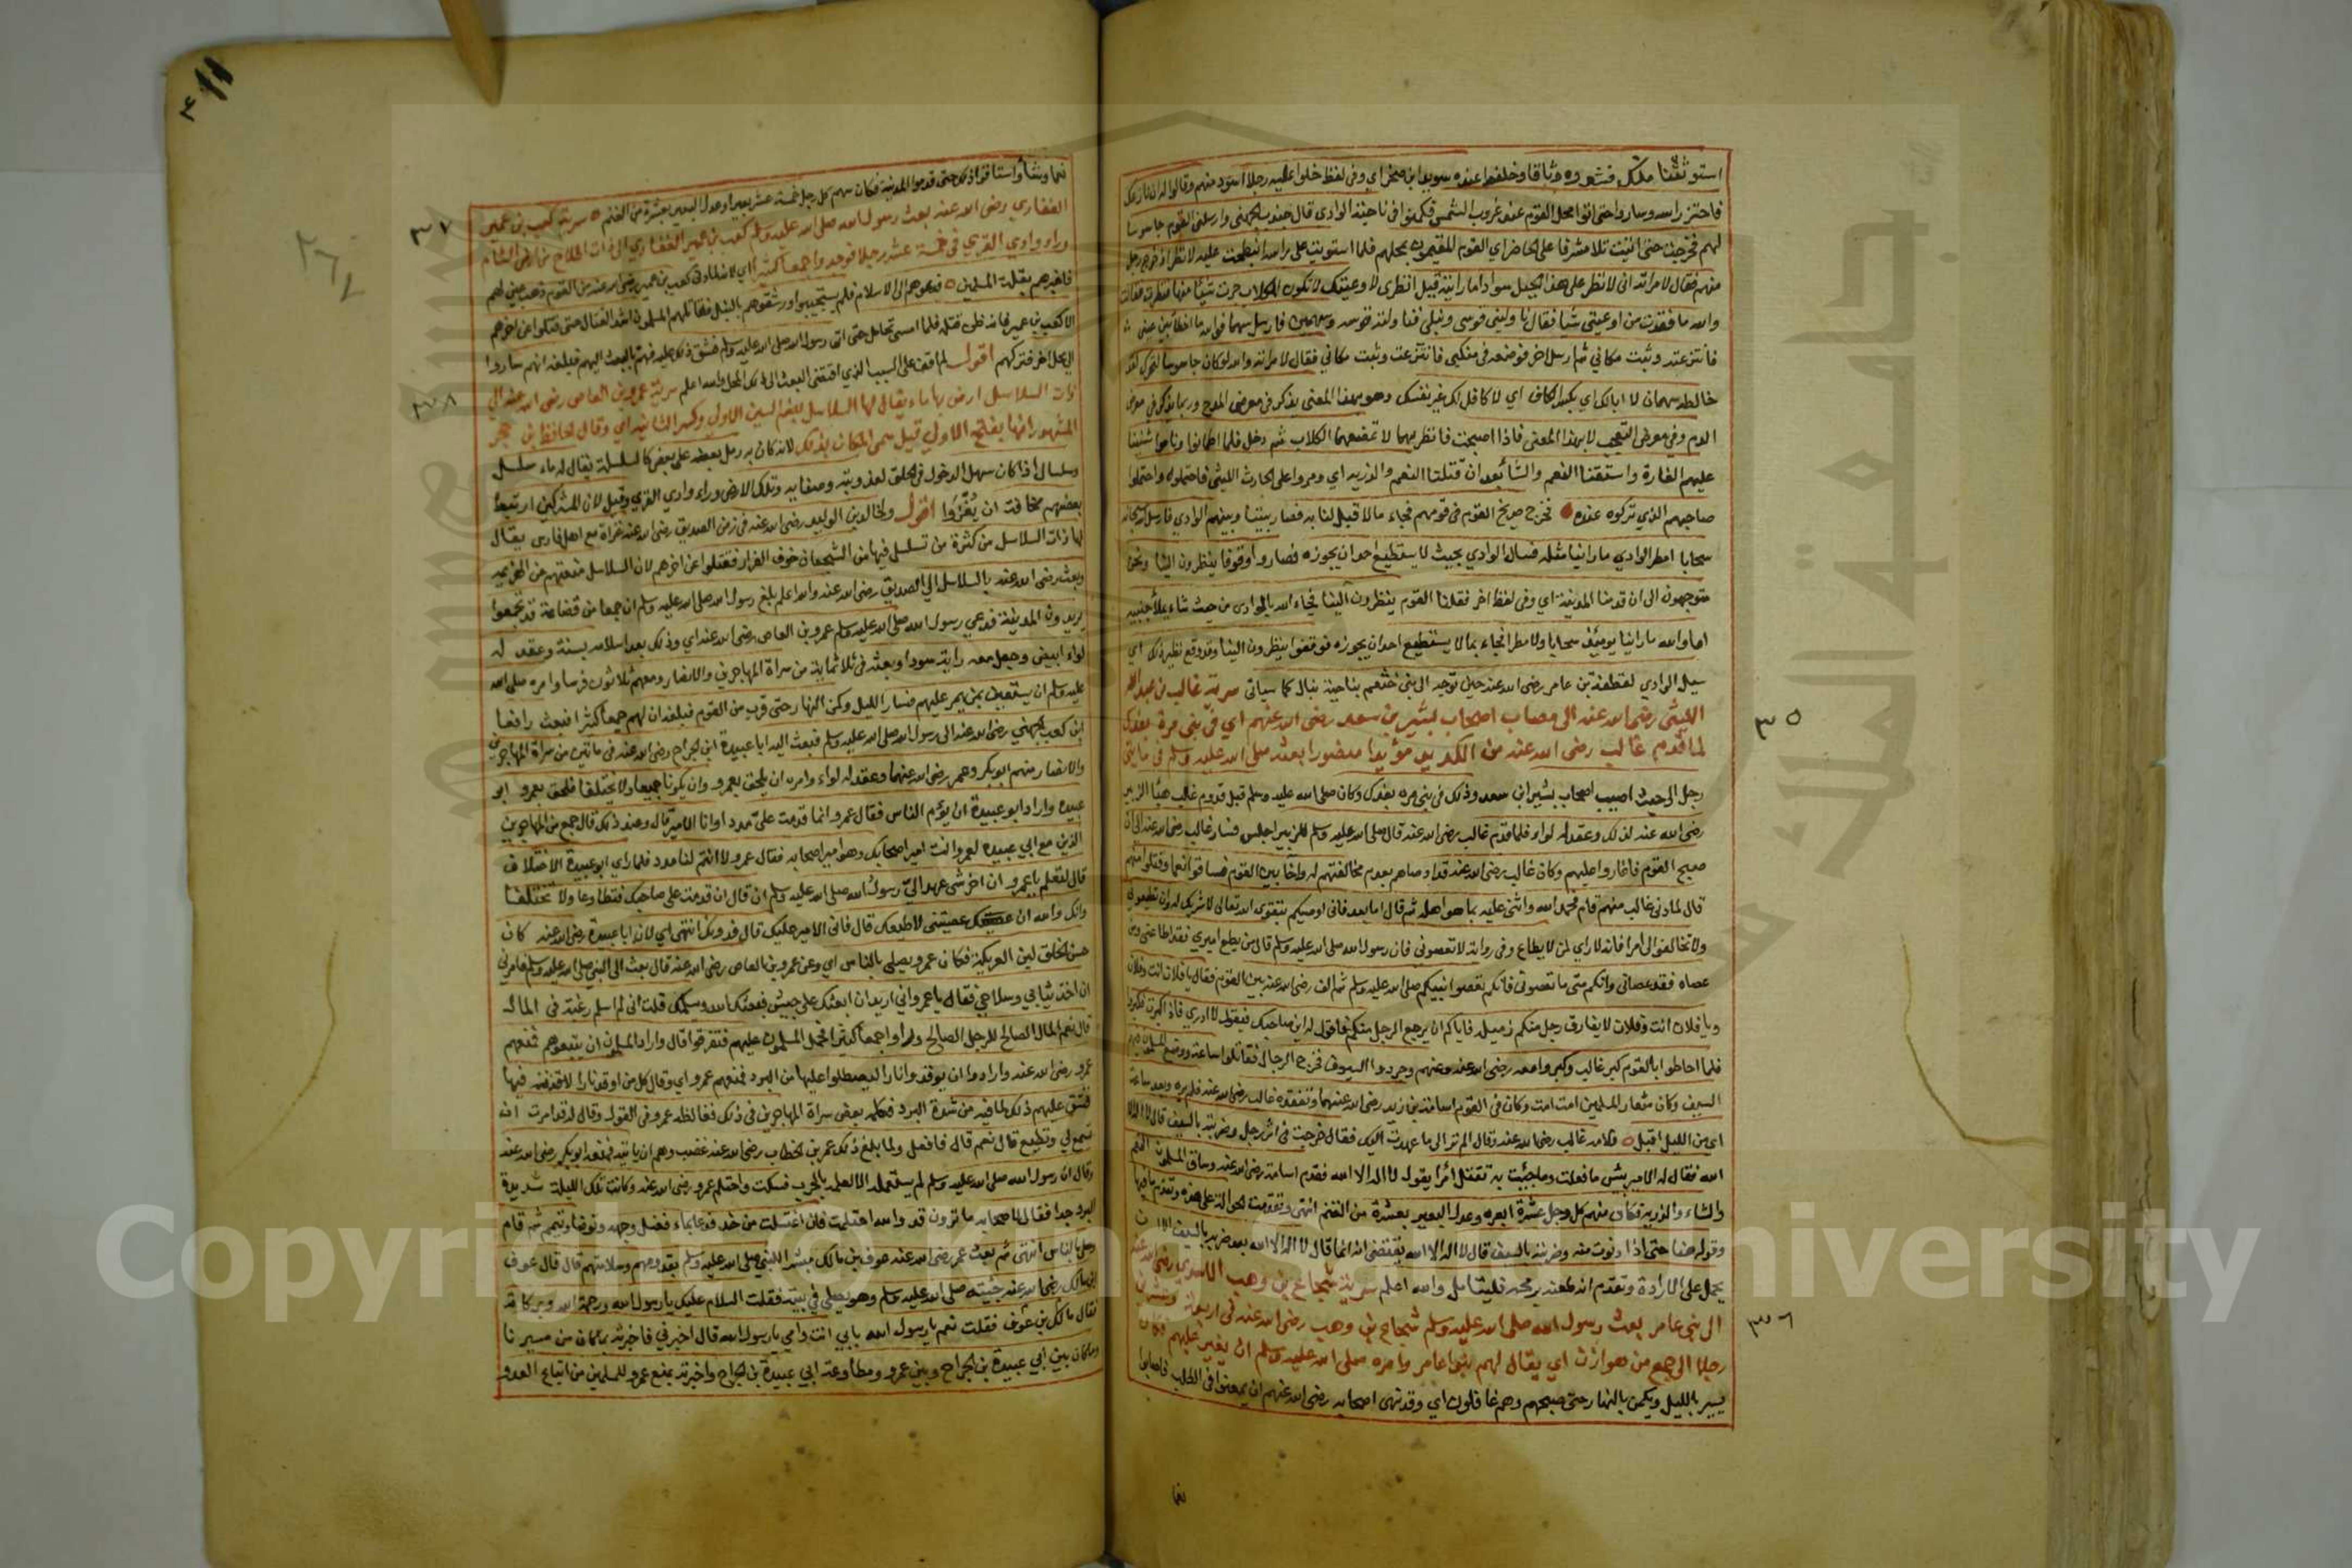 استوثقنا منك فشدوه وثاقا وخلفوا عنده سويد ابن صخر اي وفي لفظ خلوا عليه رجلا اسود منهم وقالوا له ان نازعك
فاحتز راسه وساروا حتى اتوا محل القوم عند غروب الشمس فكمنوا في ناحية الوادي قال جندب الجهني وارسلني القوم جاسوسا
لهم فخرجت حتى اتيت تلا مشرفا على الحاضر اي القوم المقيمون بمحلهم فلما استويت على راسه انبطحت عليه لانظر اذ خرج رجل
منهم فقال لامراته اني لانظر على هذا الجبل سوادا ما رايته قبل انظري لا
والله ما فقدت من اوعيتي شيا فقال ناوليني قوسي ونبلي فناولته قوسه وسهمين فارسل سهما فوالله ما اخطا بين عيني
فانتزعته وثبت مكاني ثم ارسل اخر فوضعه في منكبي فانتزعته وثبت مكاني فقال لامراته والله لو كان جاسوسا لتحرك لقد
خالطه سهمان لا ابالك اي بكسر الكاف اي لا كافل لك غير نفسك وهو بهذا المعنى يذكر في معرض المدح وربما يذكر في معرض
الذم وفي معرض التعجب لا بهذا المعنى فاذا اصبحت فانظريهما لا تمضغهما الكلاب ثم دخل فلما اطمانوا وناموا شننا
عليهم الغارة واستقنا النعم والشاء بعد ان قتلنا النعم والذرية اي ومروا على الحارث الليثي فاحتملوه واحتملوا
صاحبهم الذي تركوه عنده فخرج صريخ القوم في قومهم فجاء مالا قبل لنا به فصار بيننا وبينهم الوادي فارسل الله
سحابا امطر الوادي ما راينا مثله فسال الوادي بحيث لا يستطيع احد ان يجوزه فصاروا وقوفا ينظرون الينا ونحن
متوجهون الى ان قدمنا المدينة اي وفي لفظ اخر فقلنا القوم ينظرون الينا فجاء الله بالوادي من حيث شاء يملا جنبيه
اما والله ما راينا يومئذ سحابا ولا مطرا فجاء بما لا يستطيع احد ان يجوزه فوقفوا ينظرون الينا وقد وقع نظير ذلك اي
سيل الوادي لقطبة بن عامر رضي الله عنه حين توجه الى بني خثعم بناحية تبال كما سياتي سرية غالب بن عبد الله
الليثي رضي الله عنه الى مصاب اصحاب بشير بن سعد رضي الله عنهم اي في بني مرة بفدك
لما قدم غالب رضي الله عنه من الكديد مؤيدا منصورا بعثه صلى الله عليه وسلم في مايتي
رجل الى حيث اصيب اصحاب بشير ابن سعد وذلك في بني مره بفدك وكان صلى الله عليه وسلم قبل قدوم غالب هيا الزبير
رضي الله عنه لذلك وعقد له لواء فلما قدم غالب رضي الله عنه قال صلى الله عليه وسلم للزبير اجلس فسار غالب رضي الله عنه الى ان
صبح القوم فاغاروا عليهم وكان غالب رضي الله عنه قد اوصاهم بعدم مخالفتهم له واخا بين القوم فساقوا نعما وقتلوا منهم
قال لما دنى غالب منهم قام فحمد الله واثنى عليه بما هو اهله ثم قال اما بعد فاني اوصيكم بتقوى الله تعالى لا شريك له وان تطيعوني
ولا تخالفوا لي امرا فانه لا راي لمن لا يطاع وفي رواية لا تعصوني فان رسول الله صلى الله عليه وسلم قال من يطع اميري فقد اطاعني ومن
عصاه فقد عصاني وانكم متى ما تعصوني فانكم تعصوا نبيكم صلى الله عليه وسلم ثم الف رضي الله عنه بين القوم فقال يا فلان انت وفلان
ويا فلان انت وفلان لا يفارق رجل منكم زميله فاياكم ان يرجع الرجل منكم فاقول له اين صاحبك فيقول لا ادري فاذا كبرت فكبروا
فلما احاطوا بالقوم كبر غالب وكبروا معه رضي الله عنه وعنهم وجردوا السيوف فخرج الرجال فقاتلوا ساعة ووضع المسلمون فيهم
السيف وكان شعار المسلمين امت امت وكان في القوم اسامة بن زيد رضي الله عنهما وتفقده غالب رضي الله عنه فلم يره وبعد ساعة
اي من الليل اقبل فلامه غالب رضي الله عنه وقال الم تر الى ما عهدت اليك فقال خرجت في اثر رجل وضربته بالسيف قال لا اله الا
الله فقال له الامير بئس ما فعلت وما جئت به تقتل امرا يقول لا اله الا الله فقدم اسامة رضي الله عنه وساق المسلمون النعم
والشاء والذرية فكان سهم كل رجل عشرة ابعرة وعدل البعير بعشرة من الغنم انتهى وتقدمت الحوالة على هذه وتقدم ما فيها
وقوله هنا حتى اذا دنوت منه وضربته بالسيف قال لا اله الا الله يقتضي انه انما قال لا اله الا الله بعد ضربه بالسيف الا ان
يحمل على الارادة وتقدم انه طعنه برمحه فليتامل والله اعلم سرية شجاع بن وهب الاسدي رضي الله عنه
الى بني عامر بعث رسول الله صلى الله عليه وسلم شجاع بن وهب رضي الله عنه في اربعة وعشرين
رجلا الى جمع من هوازن اي يقال لهم بنوا عامر وامره صلى الله عليه وسلم ان يغير عليهم فكان
يسير بالليل ويكمن بالنهار حتى صبحهم وهم غافلون اي وقد نهى اصحابه رضي الله عنهم ان يمعنوا في الطلب فاصابوا
نعما
٣٥
٣٦
نعما وشاء واستاقوا ذلك حتى قدموا المدينة فكان سهم كل رجل خمسة عشر بعيرا وعدل البعير بعشرة من الغنم سرية كعب بن عمير
الغفاري رضي الله عنه بعث رسول الله صلى الله عليه وسلم كعب بن عمير الغفاري الى ذات اطلاح من ارض الشام
وراء وادي القرى في خمسة عشر رجلا فوجدوا جمعا كثيرا اي لانه لما دنى كعب بن عمير رضي الله عنه من القوم ذهب عين لهم
فاخبرهم بقلة المسلمين فدعوهم الى الاسلام فلم يستجيبوا ورشقوهم بالنبل فقاتلهم المسلمون اشد القتال حتى قتلوا عن اخرهم
الا كعب بن عمير فانه ظن قتله فلما امسى تحامل حتى اتى رسول الله صلى الله عليه وسلم فشق ذلك عليه فهم بالبعث اليهم فبلغه انهم ساروا
الى محل اخر فتركهم اقول لم اقف على السبب الذي اقتضى البعث الى ذلك المحل والله اعلم سرية عمرو بن العاص رضي الله عنه الى
ذات السلاسل ارض بها ماء يقال لها السلاسل بضم السين الاولى وكسر الثانية اي وقال الحافظ بن حجر
المشهور انها بفتح الاولى قيل سمى المكان بذلك لانه كان به رمل بعضه على بعض كالسلسلة يقال له ماء سلسل
وسلسال اذا كان سهل الدخول في الحلق لعذوبته وصفايه وتلك الارض وراء وادي القرى وقيل لان المشركين ارتبط
بعضهم مخافة ان يفروا اقول ولخالد بن الوليد رضي الله عنه في زمن الصديق رضي الله عنه غزاة مع اهل فارس يقال
لها ذات السلاسل من كثرة من تسلسل فيها من الشجعان خوف الفرار فقتلوا عن اخرهم لان السلاسل منعتهم من الهزيمة
وبعث رضي الله عنه بالسلاسل الى الصديق رضي الله عنه والله اعلم بلغ رسول الله صلى الله عليه وسلم ان جمعا من قضاعة قد تجمعوا
يريدون المدينة فدعى رسول الله صلى الله عليه وسلم عمرو بن العاص رضي الله عنه اي وذلك بعد اسلامه بسنة وعقد له
لواء ابيض وجعل معه راية سودا وبعثه في ثلاثماية من سراة المهاجرين والانصار ومعهم ثلاثون فرسا وامره صلى الله
عليه وسلم ان يستعين بمن يمر عليهم فسار الليل وكمن النهار حتى قرب من القوم فبلغه ان لهم جمعا كثيرا فبعث رافعا
ابن كعب الجهني رضي الله عنه الى رسول الله صلى الله عليه وسلم فبعث اليه ابا عبيدة ابن الجراح رضي الله عنه في مائتين من سراة المهاجرين
والانصار منهم ابو بكر وعمر رضي الله عنهما وعقد له لواء وامره ان يلحق بعمرو وان يكونا جميعا ولا يختلفا فلحق بعمرو ابو
عبيدة واراد ابو عبيدة ان يؤم الناس فقال عمرو انما قدمت علي مددا وانا الامير قال وعند ذلك قال جمع من المهاجرين
الذين مع ابي عبيدة لعمرو انت امير اصحابك وهو امير اصحابه فقال عمرو لا انتم لنا مدد فلما راى ابو عبيدة الاختلاف
قال لتعلم يا عمرو ان اخر شي عهد الي رسول الله صلى الله عليه وسلم ان قال ان قدمت على صاحبك فتطاوعا ولا تختلفا
وانك والله ان عصيتني لاطيعنك قال فاني الامير عليك قال فدونك انتهى اي لان ابا عبيدة رضي الله عنه كان
حسن الخلق لين العريكة فكان عمرو يصلي بالناس اي وعن عمرو بن العاص رضي الله عنه قال بعث الي النبي صلى الله عليه وسلم فامرني
ان اخذ ثيابي وسلاحي فقال يا عمرو اني اريد ان ابعثك على جيش فيغنمك الله ويسلمك قلت اني لم اسلم رغبة في المال
قال نعم المال الصالح للرجل الصالح وراوا جمعا كثيرا فحمل المسلمون عليهم فتفرقوا قال واراد المسلمون ان يتبعوهم فمنعهم
عمرو رضي الله عنه وارادوا ان يوقدوا نارا ليصطلوا عليها من البرد فمنعهم عمرو اي وقال كل من اوقد نارا لاقذفنه فيها
فشق عليهم ذلك لما فيه من شدة البرد فكلمه بعض سراة المهاجرين في ذلك فغالظه عمرو في القول وقال له قد امرت ان
تسمع لي وتطيع قال نعم قال فافعل ولما بلغ ذلك عمر بن الخطاب رضي الله عنه غضب وهم ان ياتيه فمنعه ابو بكر رضي الله عنه
وقال ان رسول الله صلى الله عليه وسلم لم يستعمله الا لعلمه بالحرب فسكت واحتلم عمرو رضي الله عنه وكانت تلك الليلة شديدة
البرد جدا فقال لاصحابه ما ترون قد والله احتلمت فان اغتسلت مت فدعا بماء فغسل فرجه وتوضا وتيمم ثم قام
وصلى بالناس انتهى ثم بعث عمرو رضي الله عنه عوف بن مالك مبشرا للنبي صلى الله عليه وسلم بقدومهم وسلامتهم قال قال عوف
ابن مالك رضي الله عنه جئته صلى الله عليه وسلم وهو يصلي في بيته فقلت السلام عليك يا رسول الله ورحمة الله وبركاته
فقال مالك بن عوف فقلت نعم يا رسول الله بابي انت وامي يا رسول الله قال اخبرني فاخبرته بما كان من مسيرنا
وما كان بين ابي عبيدة بن الجراح وبين عمرو ومطاوعة ابي عبيدة بن الجراح واخبرته بمنع عمرو للمسلمين من اتباع العدو
٣٧
٣٨
Copyright © King Saud University